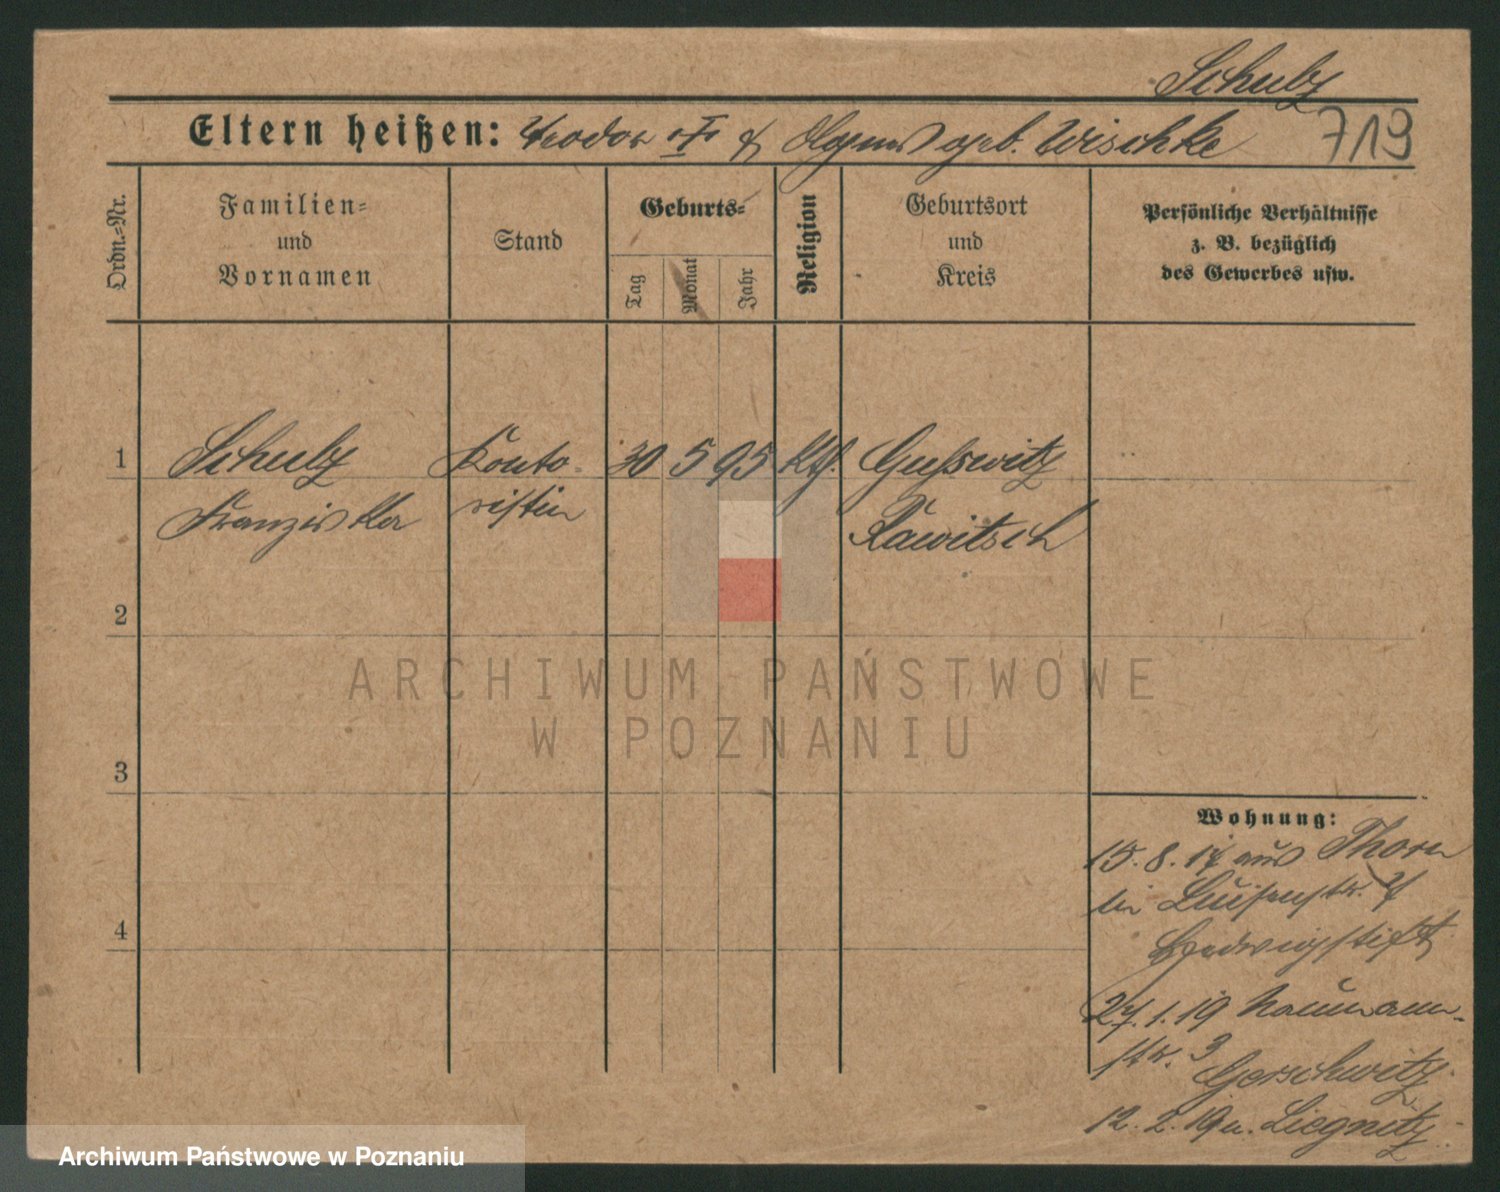 Schulz
Eltern heißen: Teodor & geb. Wischke
719
Ordn.-Nr.
Familien-
und
Vornamen
Stand
Geburts-
Tag
Monat
Jahr
Religion
Geburtsort
und
Kreis
Persönliche Verhältnisse
z. B. bezüglich
des Gewerbes usw.
1 Schulz Konto- 30 5 95 Kth. Gusswitz
Franziska ristin Rawitsch
2
3
4
ARCHIWUM PAŃSTWOWE
W POZNANIU
Wohnung:
15. 8. 17 aus Thorn
bei Luisenstr.
Hedwigstift
27. 1. 19 Naumann-
str. 3
Gorschwitz
12. 2. 19 n. Liegnitz
Archiwum Państwowe w Poznaniu